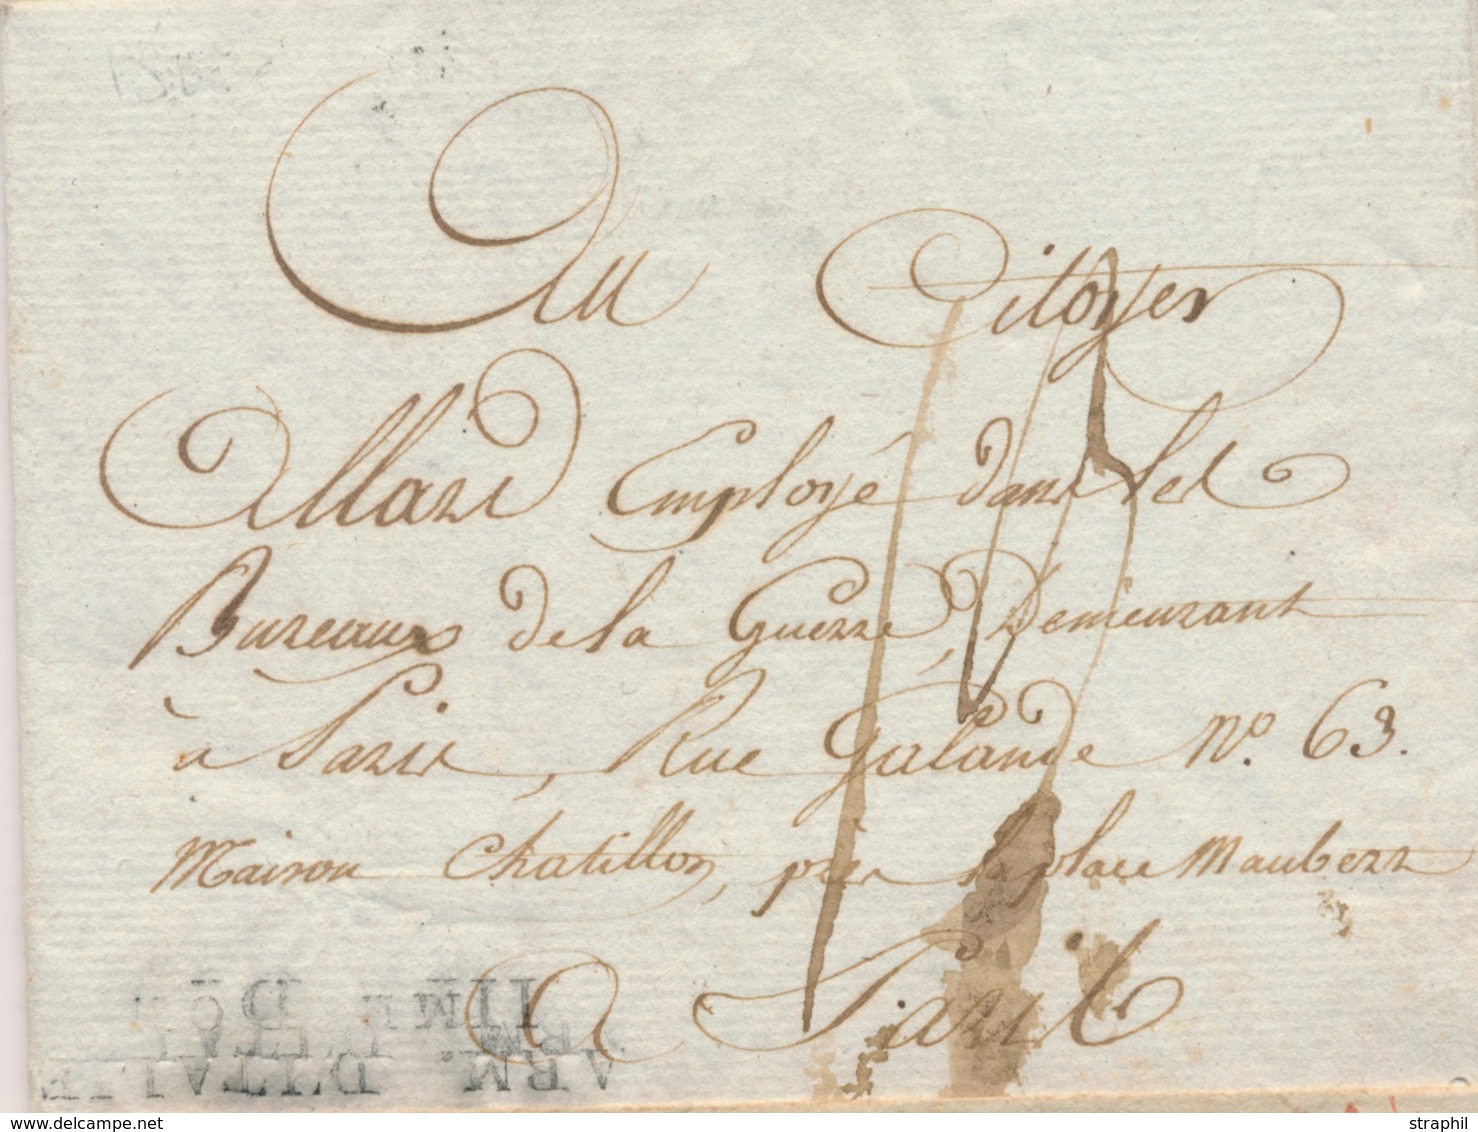 Au Citoyen
Allard Employé dans les
Bureaux de la Guerre, Demeurant
à Paris, Rue Galande No. 63.
Maison Chatillon, près la place Maubert
A Paris
IIME D
ARM. D'ITALIE
delcampe.net
straphil